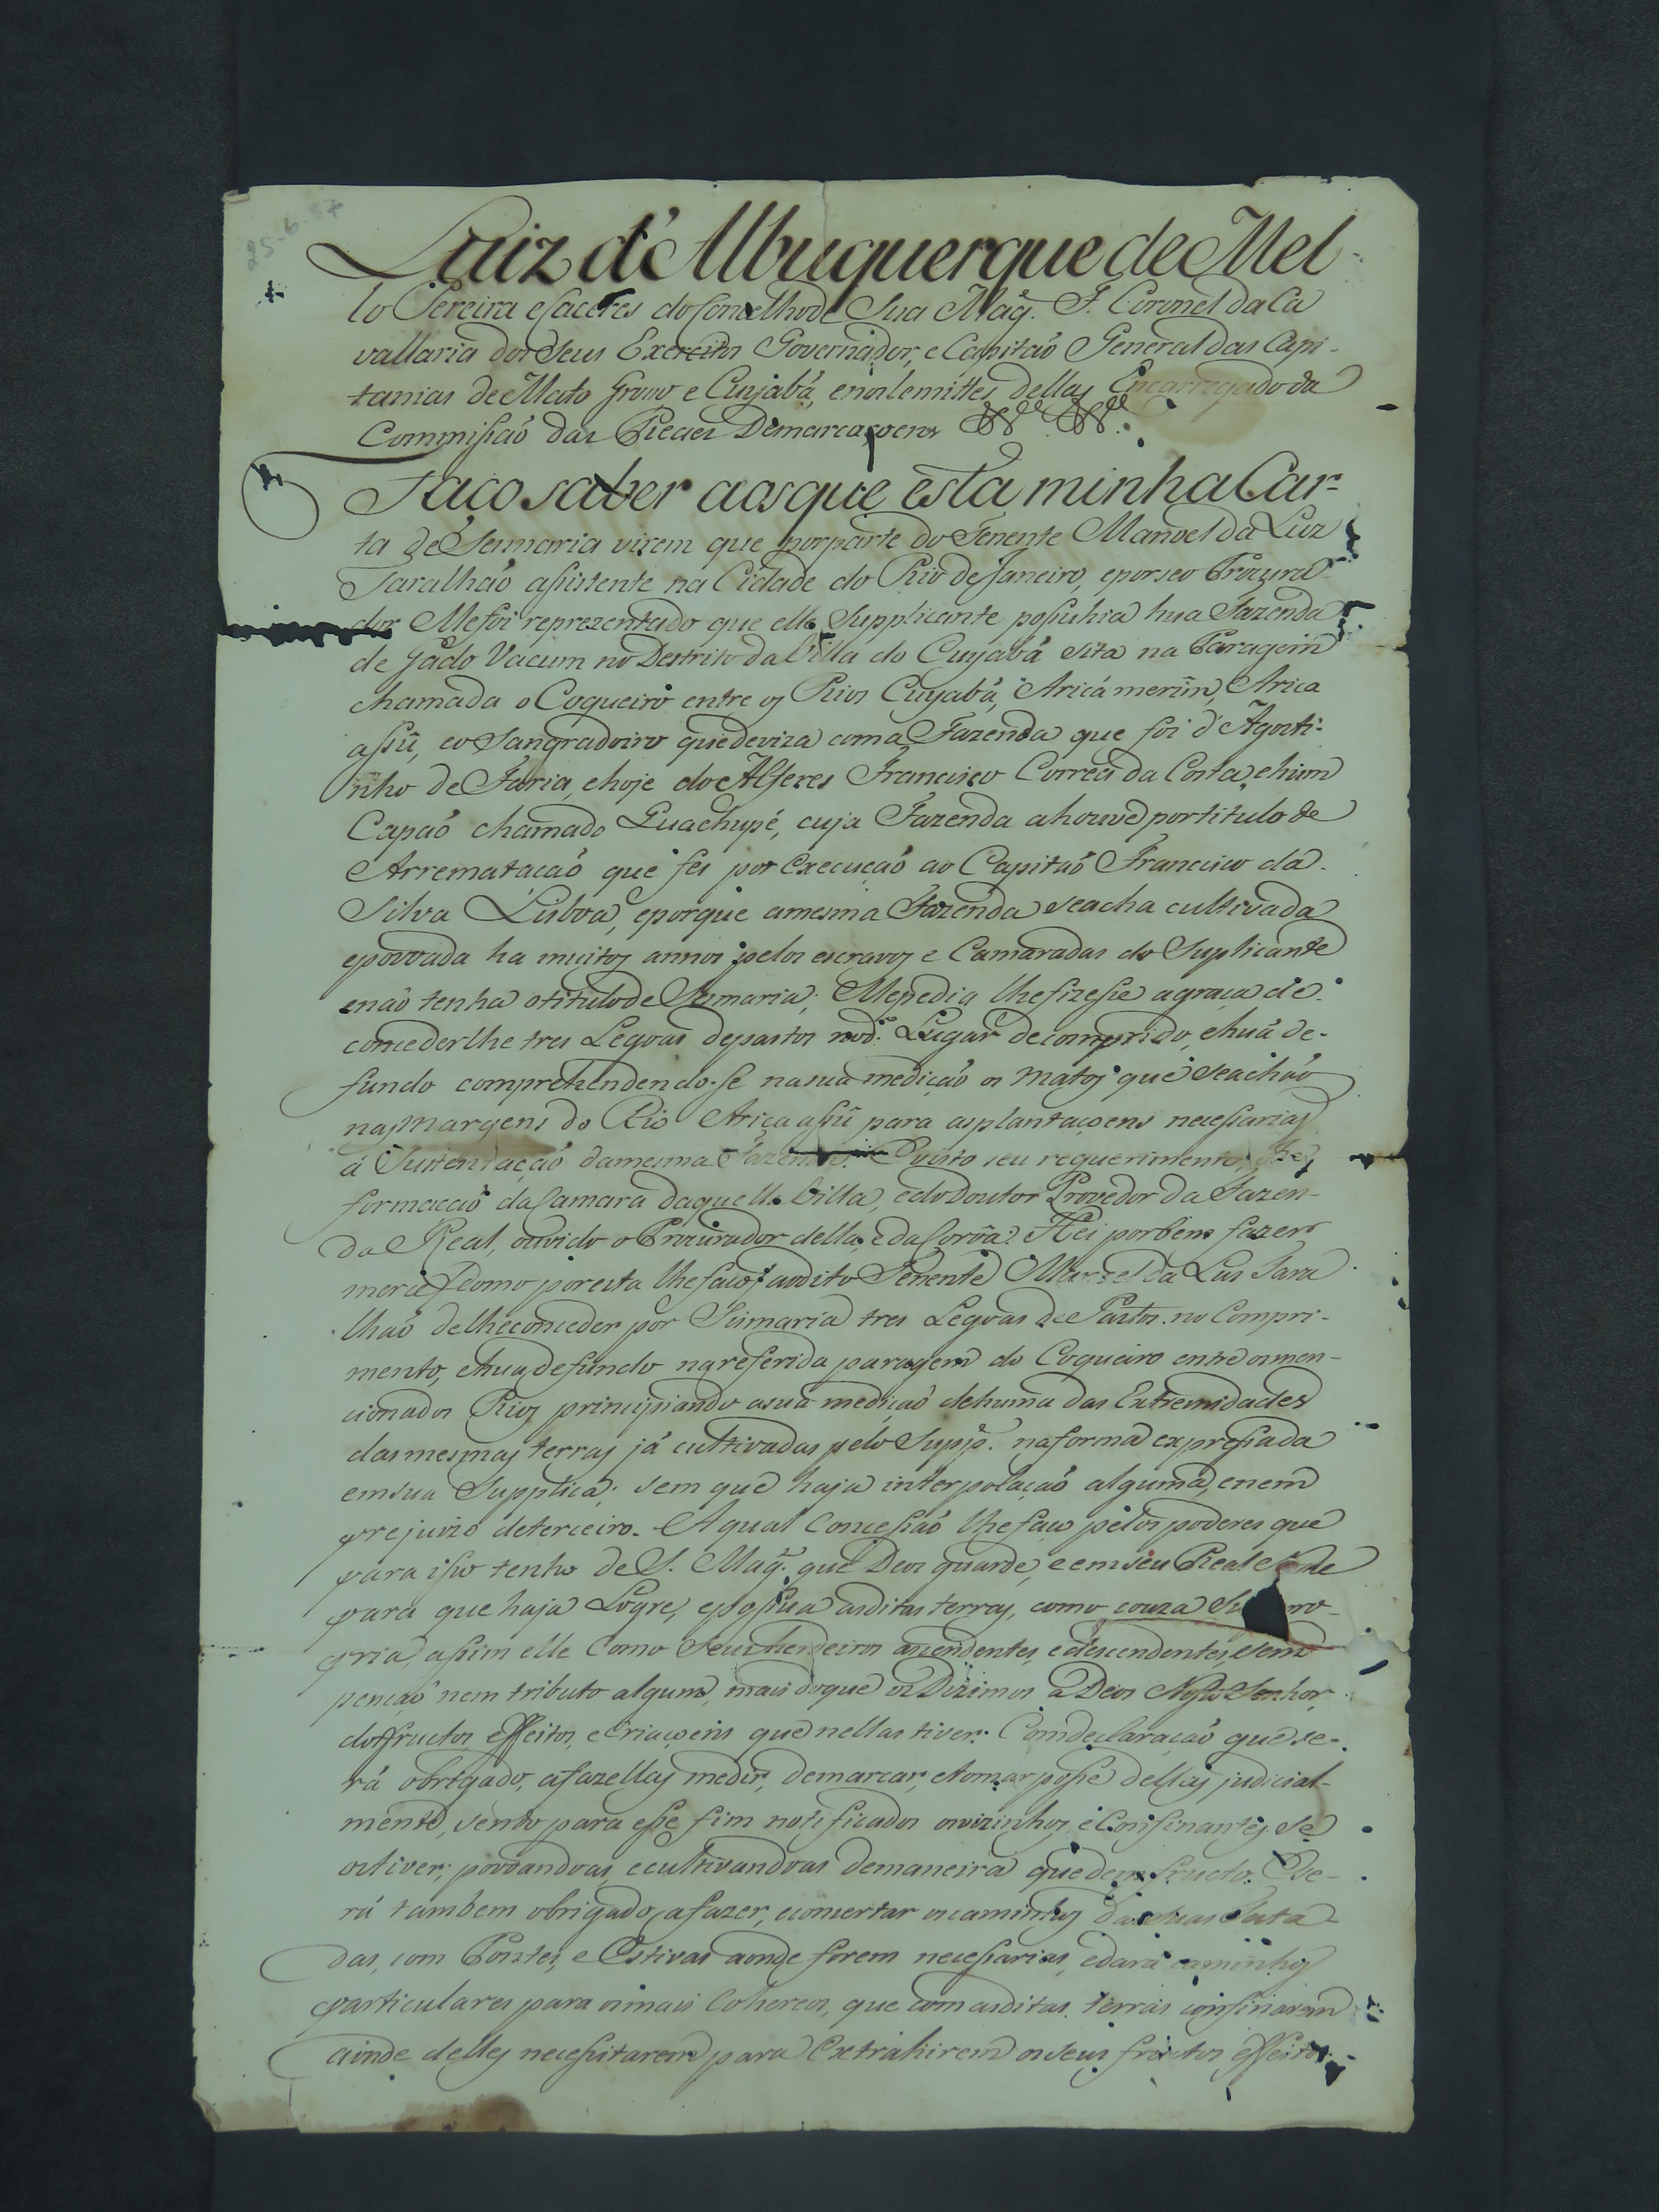 25-6-87
Luiz d'Albuquerque de Mel-
lo Pereira e Caceres do Conselho de Sua Mag.e F. Coronel da Ca
vallaria dos Seus Exercitos Governador, e Capitaõ General das Capi-
tanias de Mato Grosso e Cuyabá, e nos lemittes dellas Encarregado da
Commissaõ das Reaes Demarcaçoens &.ª &.ª
Faço saber aos que esta minha Car-
ta de Sesmaria virem que por parte do Tenente Manoel da Luz
Taralhaõ assistente na Cidade do Rio de Janeiro, e por seo Procura
dor Me foi reprezentado que elle Supplicante possuhia hua Fazenda
de Gado Vacum no Destrito da Villa do Cuyabá sita na Paragem
chamada o Coqueiro entre os Rios Cuyabá, Aricá merim, Arica
assú, e o Sangradoiro que deviza com a Fazenda que foi d'Agosti-
nho de Faria, e hoje do Alferes Francisco Correa da Costa, e hum
Capaõ chamado Guachupé, cuja Fazenda a houve por titulo de
Arremataçaõ que fes por execuçaõ ao Capitaõ Francisco da
Silva Lisboa, e porque a mesma Fazenda se acha cultivada
e povoada ha muitos annos pelos escravos e Camaradas do Suplicante
e naõ tenha o titulo de Sesmaria; Me pedia lhe fizesse a graça de
conceder lhe tres Legoas de pastos no d.º Lugar de comprido, e huã de
fundo comprehendendo-se na sua mediçaõ os Matos que se achaõ
nas Margens do Rio Arica assú para as plantaçoens necessarias
á Sustentaçaõ da mesma Fazenda. E visto seu requerimento,
formaçaõ da Camara daquella Villa, e do Doutor Provedor da Fazen-
da Real, ouvido o Procurador della, e da Coroa: Hei por bem fazer
mercê (como por esta lhe faço) ao dito Tenente Manoel da Luz Tara
lhaõ de lhe conceder por Sismaria tres Legoas de Pastos no Compri-
mento, e hua de fundo na referida paragem do Coqueiro entre os men-
cionados Rios principiando a sua mediçaõ de huma das Extremidades
das mesmas terras já cultivadas pelo Supp.e na forma expressada
em sua Supplica; sem que haja interpolaçaõ alguma, e nem
prejuizo de terceiro. A qual Concessaõ lhe faço pelos poderes que
para isso tenho de S. Mag.e que Deos guarde, e em seu Real Nome
para que haja Logre, e possua as ditas terras, como couza Sua pro-
pria, assim elle como Seus herdeiros ascendentes, e descendentes, sem
pençaõ nem tributo algum, mais do que os Dizimos a Deos Nosso Senhor
dos fructos, effeitos, e Criaçoens que nellas tiver. Com declaraçaõ que se-
rá obrigado, a fazellas medir, demarcar, e tomar posse dellas judicial-
mente, sendo para esse fim notificados os vizinhos, e Confinantes, se
os tiver; povoandoas, e cultivandoas de maneira que dem fructo. E se-
rá tambem obrigado a fazer, e concertar os caminhos das suas Testa
das, com Pontes, e Estivas aonde forem necessarias, e dará caminhos
particulares para os mais Colhereos, que com as ditas terras confinarem
aonde delles necessitarem para Extrahirem os seus fructos, effeitos